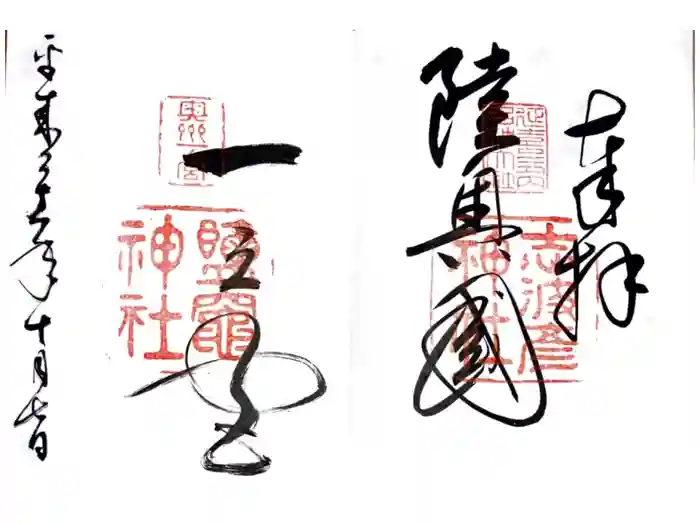 奉拝
陸奥國
志波彦
神社
一之宮
奥州
一宮
鹽竈
神社
平成二十六年十月七日